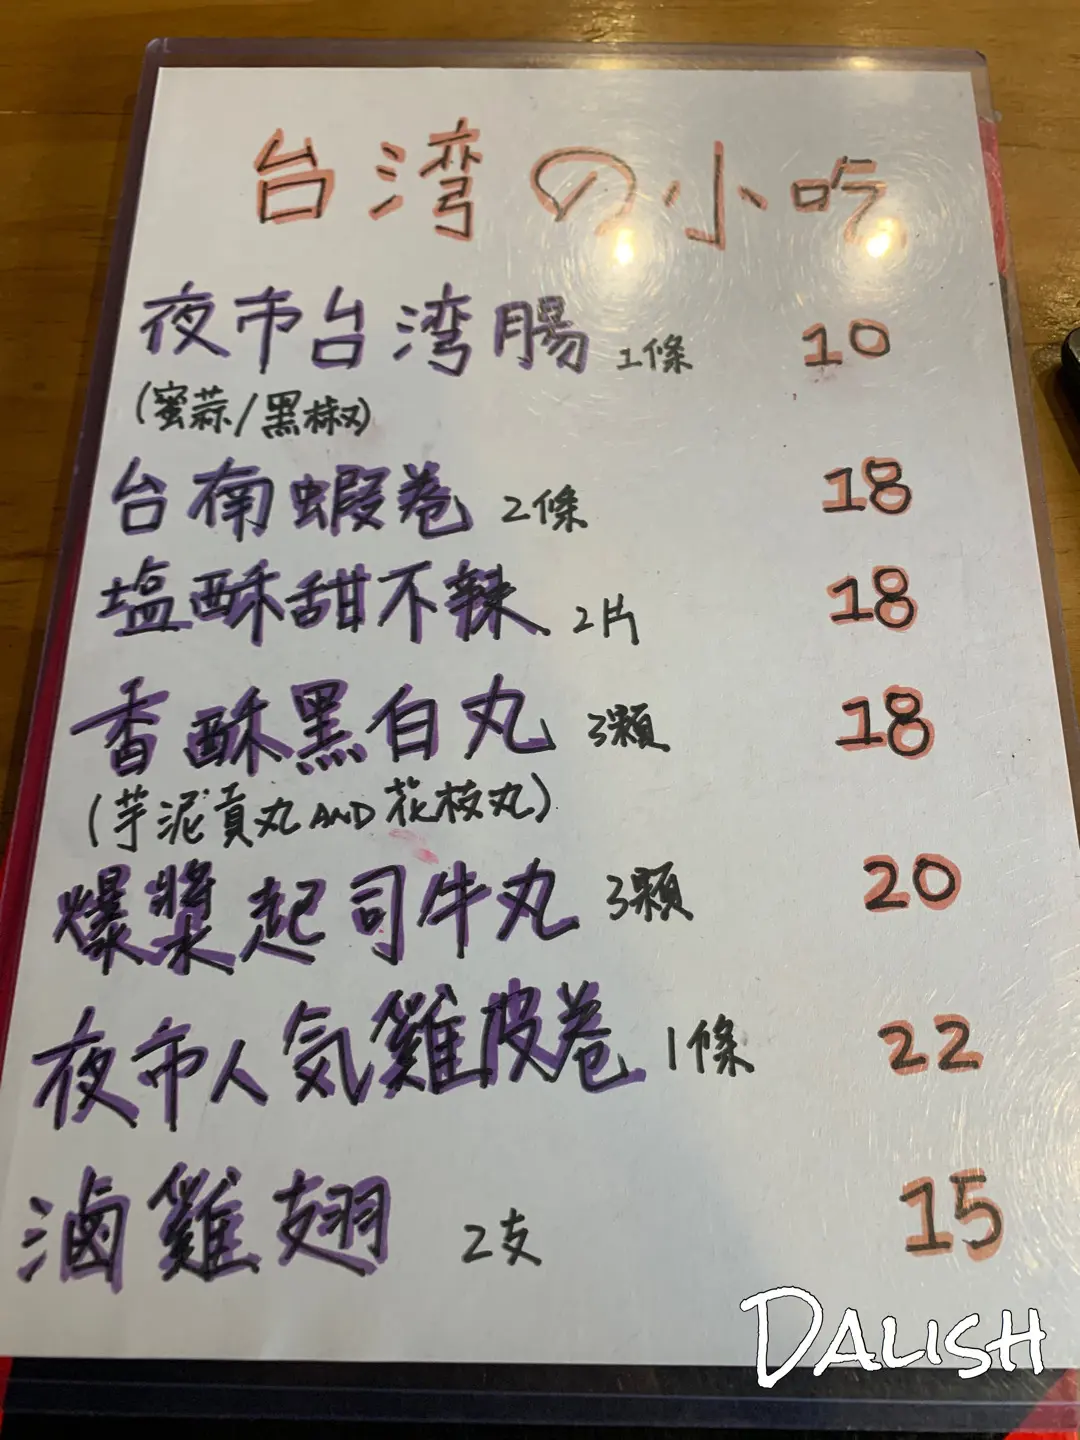 台湾の小吃
夜市台湾腸 1條 10
(蜜蒜/黑椒)
台南蝦卷 2條 18
塩酥甜不辣 2片 18
香酥黑白丸 3顆 18
(芋泥貢丸AND花枝丸)
爆漿起司牛丸 3顆 20
夜市人気雞皮卷 1條 22
滷雞翅 2支 15
DALISH